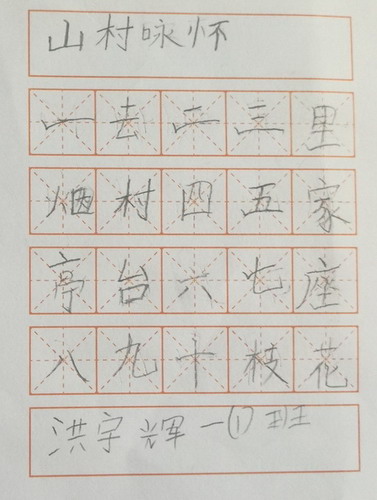 山村咏怀
一去二三里
烟村四五家
亭台六七座
八九十枝花
洪宇辉 一(1)班